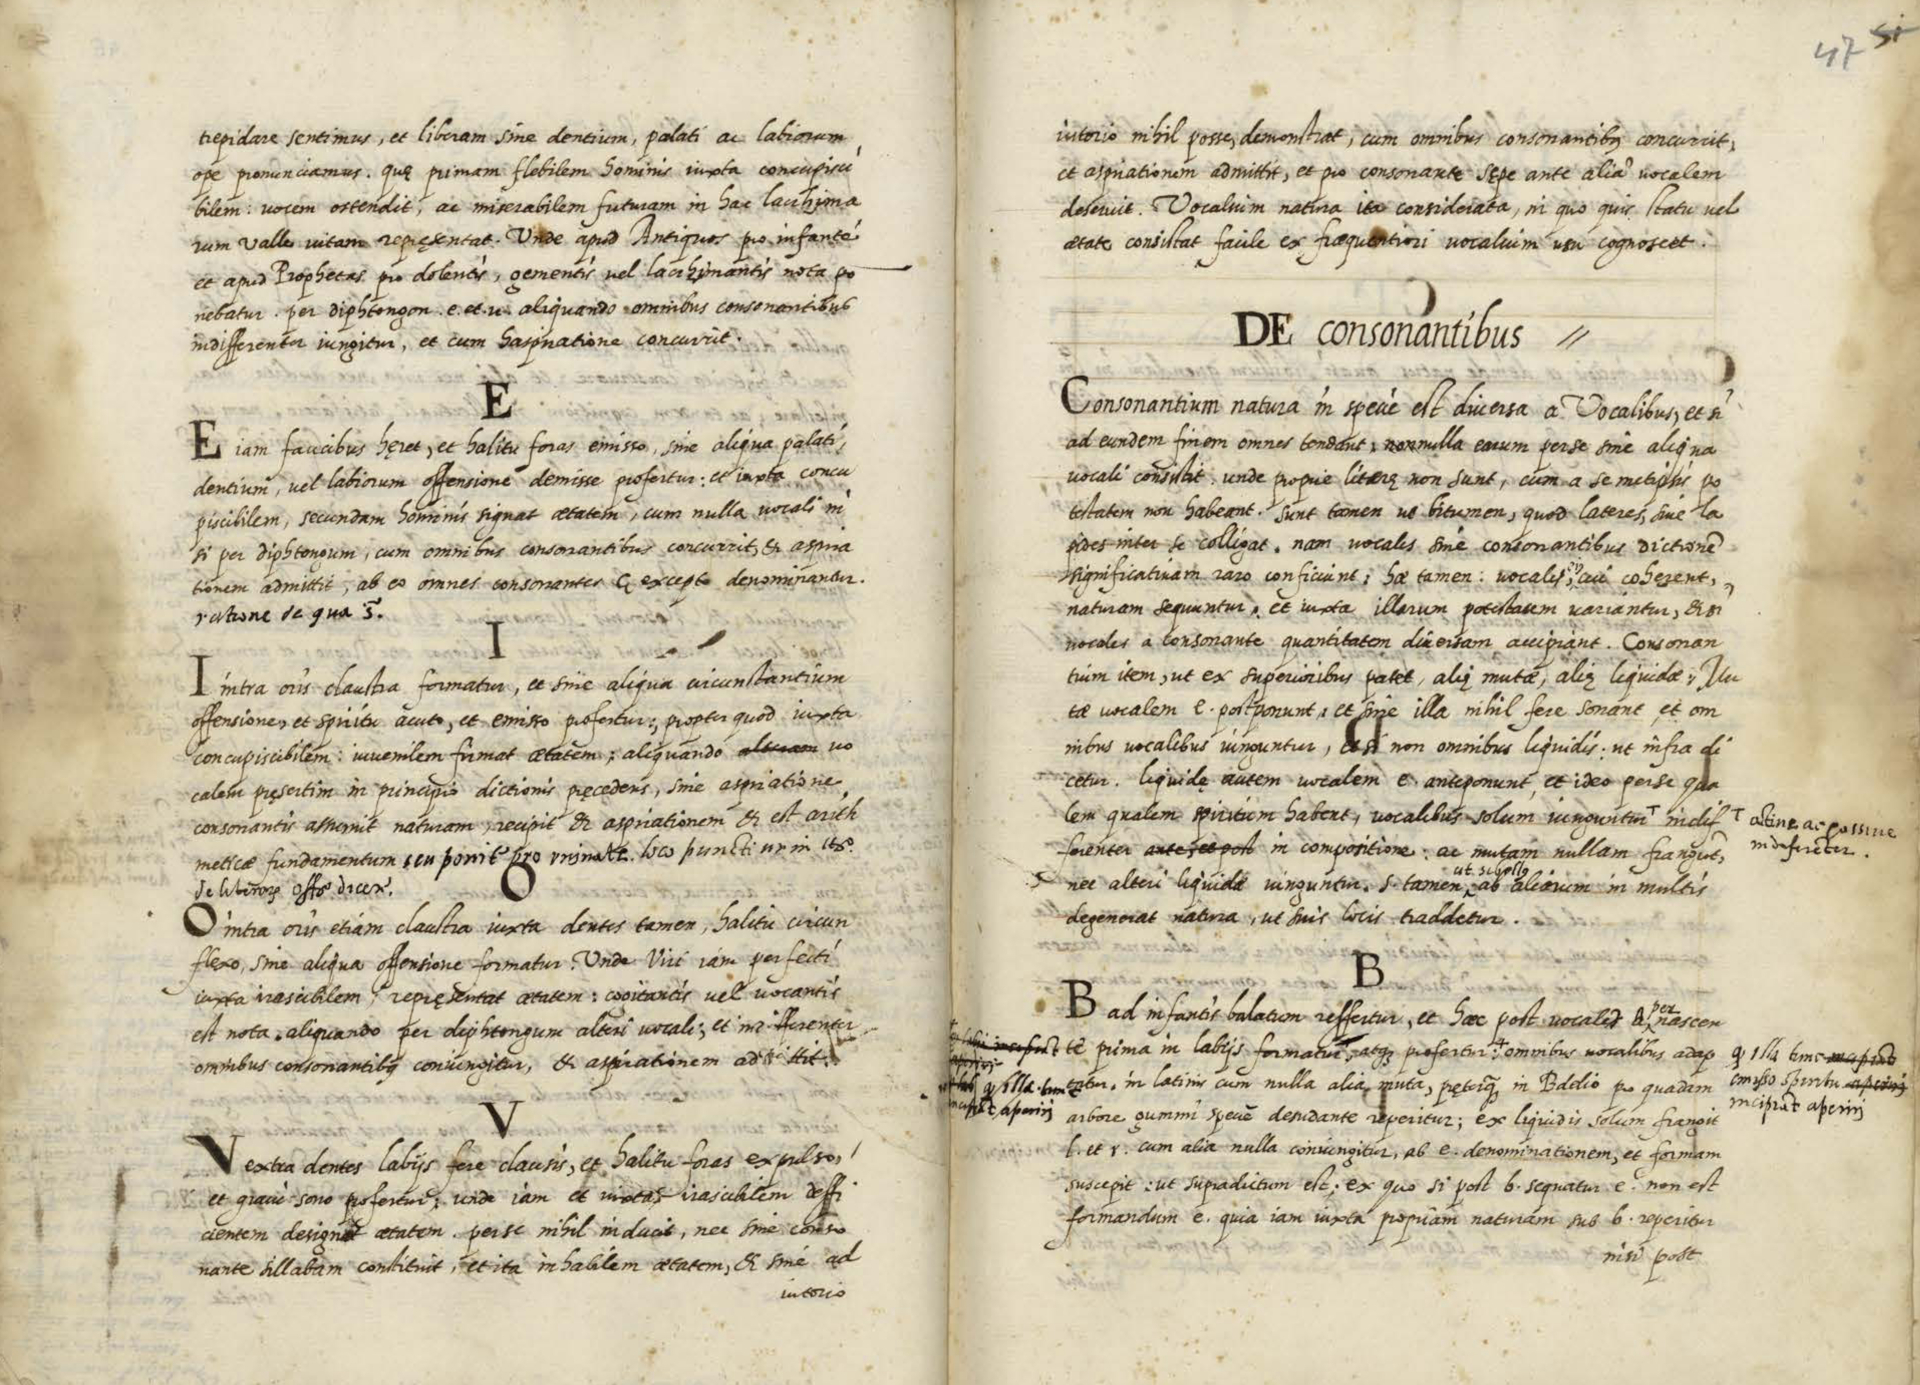 trepidare sentimus, et liberam sine dentium, palati ac labiorum
ope pronunciamus. quę primam flebilem hominis iuxta concupisci
bilem: uocem ostendit, ac miserabilem futuram in hac lachrima
rum valle uitam repręsentat. Unde apud Antiquos pro infante
et apud Prophetas pro dolentis, gementis uel lachrimantis nota po
nebatur. per diphtongon .e. et .u. aliquando omnibus consonantibus
indifferenter iungitur, et cum haspiratione concurrit.
E
E iam faucibus hęret, et halitu foras emisso, sine aliqua palati,
dentium, uel labiorum offensione demisse profertur: et iuxta concu
piscibilem, secundam hominis signat ætatem, cum nulla uocali ni
si per diphtongum, cum omnibus consonantibus concurrit, & aspira
tionem admittit, ab eo omnes consonantes excepto denominantur.
ratione de qua s̄.
I
I intra oris claustra formatur, et sine aliqua circunstantium
offensione, et spiritu acuto, et emisso profertur; propter quod iuxta
concupiscibilem: iuuenilem firmat ætatem; aliquando alteram uo
calem pręsertim in principio dictionis pręcedens, sine aspiratione
consonantis assumit naturam, recipit & aspirationem & est arith
meticæ fundamentum seu ponit pro loco puncti ut in
O
O intra oris etiam claustra iuxta dentes tamen, halitu circun
flexo, sine aliqua offensione formatur. Unde Viri iam perfecti
iuxta irascibilem; repręsentat ætatem: cogitantis uel uocantis
est nota. aliquando per diphtongum alteri uocali, et indifferenter
omnibus consonantibꝫ coniungitur, & aspirationem admittit.
V
V extra dentes labijs fere clausis, et halitu foras expulso,
et graui sono profertur; unde iam et iuxta irascibilem deffi
cientem designat ætatem. per se nihil inducit, nec sine conso
nante sillabam constituit, et ita inhabilem ætatem, & sine ad
iutorio
47 51
iutorio nihil posse, demonstrat, cum omnibus consonantibꝫ concurrit,
et aspirationem admittit, et pro consonante sępe ante aliā uocalem
deseruit. Vocalium natura ita considerata, in quo quis statu uel
ætate consistat facile ex fræquentiori uocalium usu cognoscet.
DE consonantibus //
Consonantium natura in specie est diuersa a Vocalibus, et si
ad eundem finem omnes tendant; nonnulla earum per se sine aliqua
uocali consistit. unde proprie literę non sunt, cum a se metipsis po
testatem non habeant. sunt tamen ut bitumen, quod lateres, siue la
pides inter se colligat. nam uocales sine consonantibus dictionē
significatiuam raro conficiunt; hæ tamen: uocalis, cui coherent,
naturam sequuntur. et iuxta illarum potestatem uariantur, & si
uocales a consonante quantitatem diuersam accipiant. Consonan
tium item, ut ex superioribus patet, alię mutæ, alię liquidæ; Mu
tæ uocalem e. postponunt, et sine illa nihil fere sonant et om
nibus uocalibus iunguntur, et si non omnibus liquidis: ut infra di
cetur. liquidę autem uocalem e anteponunt, et ideo per se qua
lem qualem spiritum habent, uocalibus solum iunguntur T indif
ferenter ante, et post in compositione: ac mutam nullam frangūt,
T actiue ac possiue
indeferēter.
nec alteri liquidæ iunguntur. s. tamen ab aliarum in multis
degenerat natura, ut suis locis traddetur.
B
B ad infantis balatum reffertur, et hæc post uocales a nascen
te prima in labijs formatur, atqꝫ profertur; + omnibus uocalibus adap
tatur. in latinis cum nulla alia muta, in Bdelio pro quadam
arbore gummi specie desudante reperitur; ex liquidis solum frangit
l. et r. cum alia nulla coniungitur, ab e. denominationem, et formam
suscepit: ut supradictum est; ex quo si post b. sequatur e. non est
formandum e. quia iam iuxta propriam naturam sub b. reperitur
nisi post
q illa tunc
emisso spiritu
incipiūt aperiri
q illa tunc
incipiūt aperiri